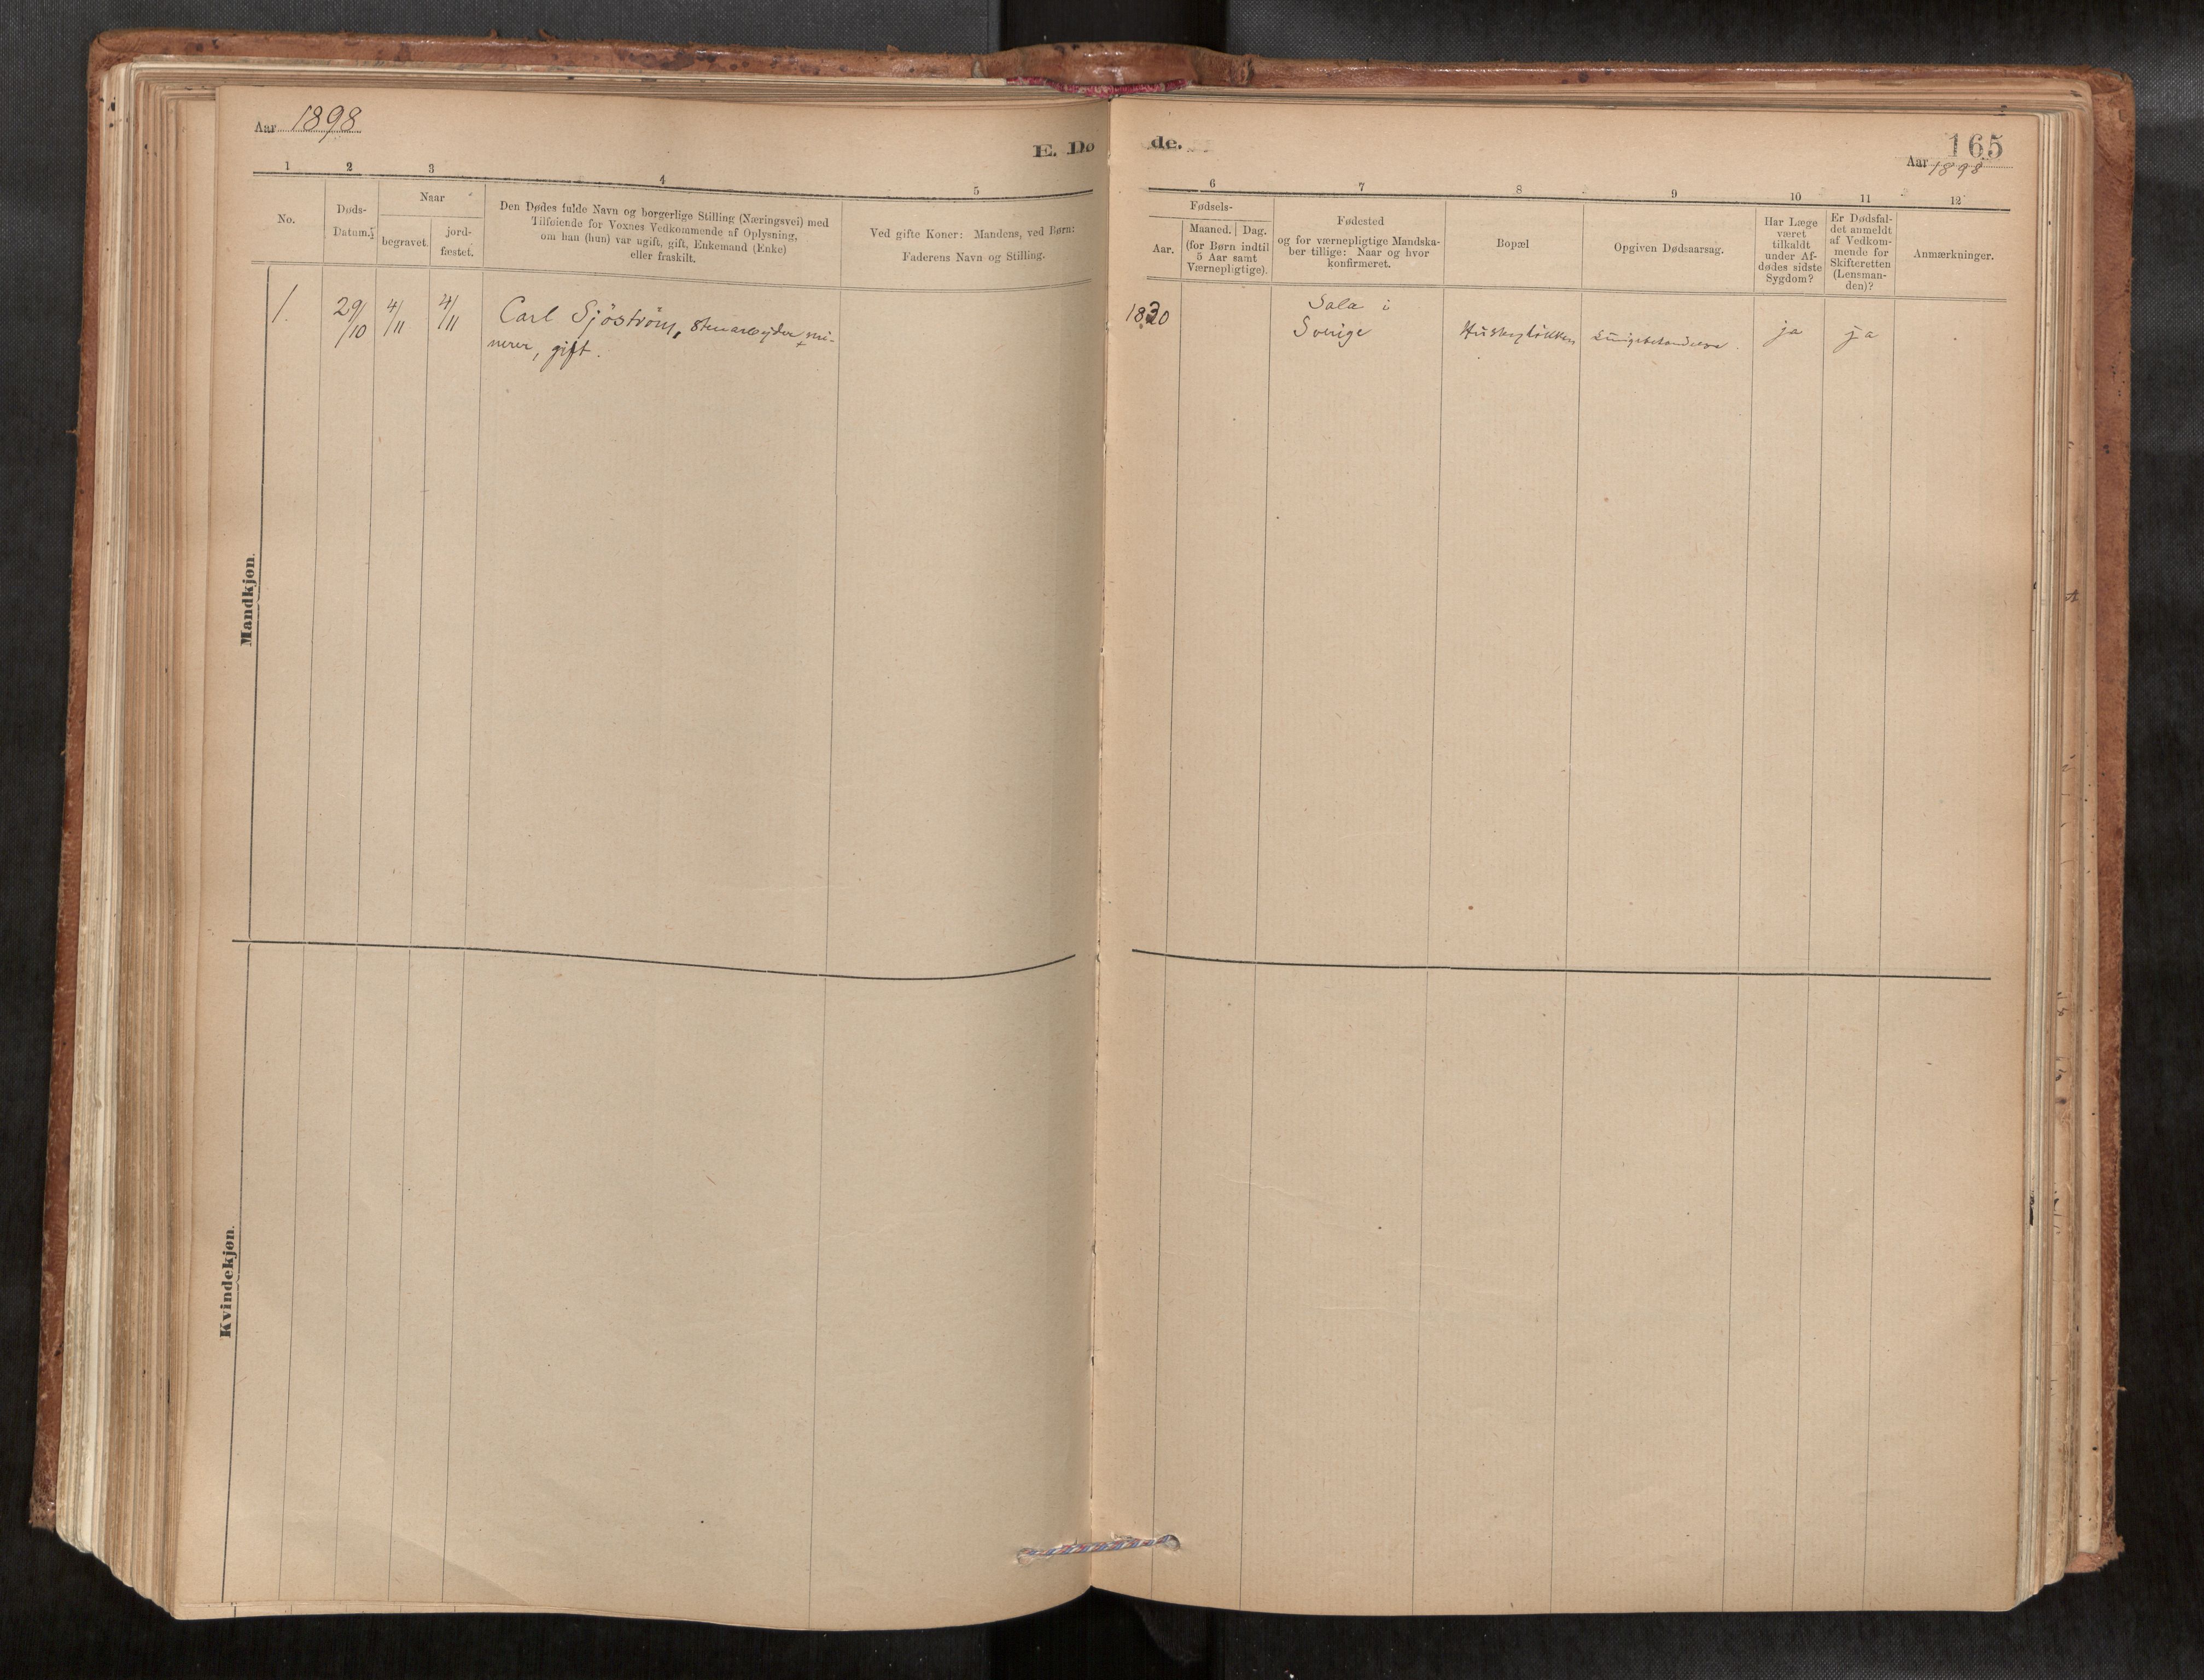 Aar 1898
E. Dø
1 2 3 4 5
No.
Døds-
Datum.
Naar
begravet.
jord-
fæstet.
Den Dødes fulde Navn og borgerlige Stilling (Næringsvei) med
Tilføiende for Voxnes Vedkommende af Oplysning,
om han (hun) var ugift, gift, Enkemand (Enke)
eller fraskilt.
Ved gifte Koner: Mandens, ved Børn:
Faderens Navn og Stilling.
Mandkjøn.
1. 29/10 4/11 4/11 Carl Sjöström, Stenarbejder, mi-
nerer, gift.
Kvindekjøn.
de.
165
Aar 1898
6 7 8 9 10 11 12
Fødsels-
Aar.
Maaned. Dag.
(for Børn indtil
5 Aar samt
Værnepligtige).
Fødested
og for værnepligtige Mandska-
ber tillige: Naar og hvor
konfirmeret.
Bopæl
Opgiven Dødsaarsag.
Har Læge
været
tilkaldt
under Af-
dødes sidste
Sygdom?
Er Dødsfal-
det anmeldt
af Vedkom-
mende for
Skifteretten
(Lensman-
den)?
Anmærkninger.
1830
Sala i
Sverige
ja
ja